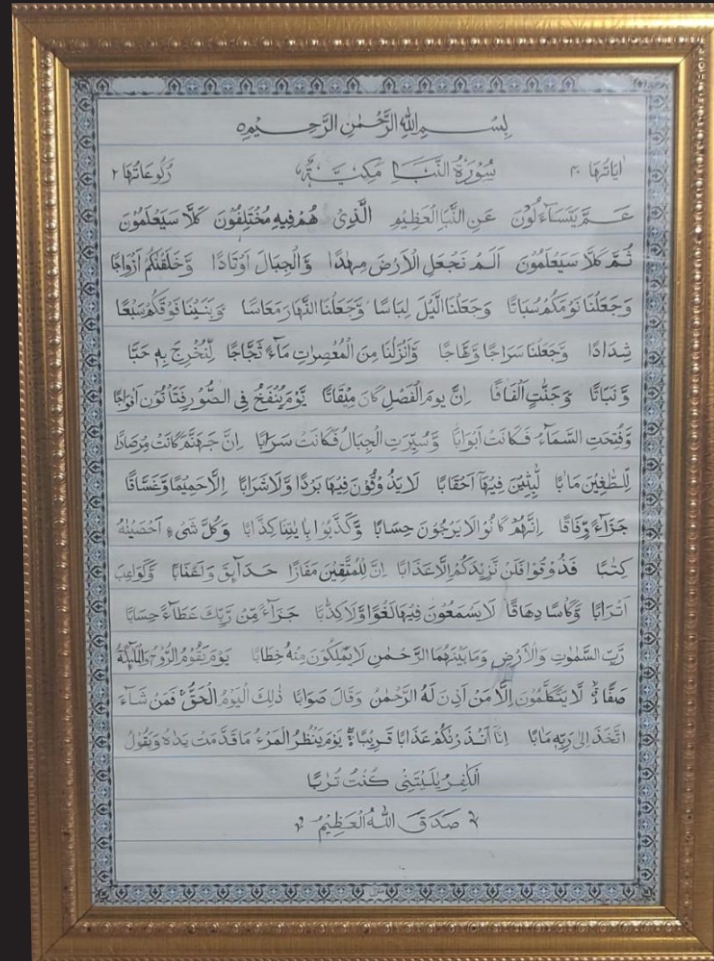 بِسْــــمِ اللهِ الرَّحْمٰنِ الرَّحِـــيْمِ
اٰيَاتُهَا ۴۰ سُوْرَةُ النَّبَاِ مَكِّيَّةٌ رُكُوْعَاتُهَا ۲
عَــمَّ يَتَسَآءَلُوْنَ عَنِ النَّبَاِ الْعَظِيْمِ الَّذِيْ هُمْ فِيْهِ مُخْتَلِفُوْنَ كَلَّا سَيَعْلَمُوْنَ
ثُمَّ كَلَّا سَيَعْلَمُوْنَ اَلَمْ نَجْعَلِ الْاَرْضَ مِهٰدًا وَّالْجِبَالَ اَوْتَادًا وَّخَلَقْنٰكُمْ اَزْوَاجًا
وَجَعَلْنَا نَوْمَكُمْ سُبَاتًا وَجَعَلْنَا الَّيْلَ لِبَاسًا وَّجَعَلْنَا النَّهَارَ مَعَاشًا وَّبَنَيْنَا فَوْقَكُمْ سَبْعًا
شِدَادًا وَّجَعَلْنَا سِرَاجًا وَّهَّاجًا وَّاَنْزَلْنَا مِنَ الْمُعْصِرٰتِ مَآءً ثَجَّاجًا لِّنُخْرِجَ بِهٖ حَبًّا
وَّنَبَاتًا وَّجَنّٰتٍ اَلْفَافًا اِنَّ يَوْمَ الْفَصْلِ كَانَ مِيْقَاتًا يَّوْمَ يُنْفَخُ فِى الصُّوْرِ فَتَاْتُوْنَ اَفْوَاجًا
وَّفُتِحَتِ السَّمَآءُ فَكَانَتْ اَبْوَابًا وَّسُيِّرَتِ الْجِبَالُ فَكَانَتْ سَرَابًا اِنَّ جَهَنَّمَ كَانَتْ مِرْصَادًا
لِّلطّٰغِيْنَ مَاٰبًا لّٰبِثِيْنَ فِيْهَآ اَحْقَابًا لَايَذُوْقُوْنَ فِيْهَا بَرْدًا وَّلَاشَرَابًا اِلَّاحَمِيْمًا وَّغَسَّاقًا
جَزَآءً وِّفَاقًا اِنَّهُمْ كَانُوْا لَا يَرْجُوْنَ حِسَابًا وَّكَذَّبُوْا بِاٰيٰتِنَا كِذَّابًا وَكُلَّ شَىْءٍ اَحْصَيْنٰهُ
كِتٰبًا فَذُوْقُوْا فَلَنْ نَّزِيْدَكُمْ اِلَّا عَذَابًا اِنَّ لِلْمُتَّقِيْنَ مَفَازًا حَدَآئِقَ وَاَعْنَابًا وَّكَوَاعِبَ
اَتْرَابًا وَّكَاْسًا دِهَاقًا لَايَسْمَعُوْنَ فِيْهَا لَغْوًا وَّلَا كِذّٰبًا جَزَآءً مِّنْ رَّبِّكَ عَطَآءً حِسَابًا
رَّبِّ السَّمٰوٰتِ وَالْاَرْضِ وَمَا بَيْنَهُمَا الرَّحْمٰنِ لَا يَمْلِكُوْنَ مِنْهُ خِطَابًا يَوْمَ يَقُوْمُ الرُّوْحُ وَالْمَلٰٓئِكَةُ
صَفًّا لَّا يَتَكَلَّمُوْنَ اِلَّا مَنْ اَذِنَ لَهُ الرَّحْمٰنُ وَقَالَ صَوَابًا ذٰلِكَ الْيَوْمُ الْحَقُّ فَمَنْ شَآءَ
اتَّخَذَ اِلٰى رَبِّهٖ مَاٰبًا اِنَّآ اَنْذَرْنٰكُمْ عَذَابًا قَرِيْبًا يَّوْمَ يَنْظُرُ الْمَرْءُ مَا قَدَّمَتْ يَدٰهُ وَيَقُوْلُ
الْكٰفِرُ يٰلَيْتَنِىْ كُنْتُ تُرٰبًا
صَدَقَ اللهُ الْعَظِيْمُ